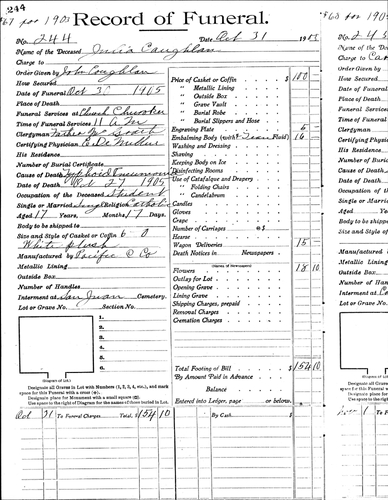 244
for 1905 Record of Funeral.
No. 244 Date Oct 31 19
Name of the Deceased Caughlan
Charge to
Order Given by Coughlan
How Secured
Date of Funeral Oct 30 1905
Place of Death
Funeral Services at Church
Time of Funeral Services 11 A.M.
Clergyman Father
Certifying Physician
His Residence
Number of Burial Certificate
Cause of Death Typhoid Pneumonia
Date of Death Oct 27 1905
Occupation of the Deceased Student
Single or Married Single Religion Catholic
Aged 17 Years, Months 17 Days.
Body to be shipped to
Size and Style of Casket or Coffin 6 0
White plush
Manufactured by Pacific Co
Metallic Lining
Outside Box
Number of Handles
Interment at San Juan Cemetery.
Lot or Grave No. Section No.
Price of Casket or Coffin $ 100
" Metallic Lining
" Outside Box
" Grave Vault
" Burial Robe
" Burial Slippers and Hose
Engraving Plate 5
Embalming Body (with Fluid) 16
Washing and Dressing
Shaving
Keeping Body on Ice
Disinfecting Rooms
Use of Catafalque and Drapery
" Folding Chairs
" Candelabrum
Candles
Gloves
Crape
Number of Carriages
Hearse
Wagon Deliveries 15
Death Notices in Newspapers
(Names of Newspapers)
Flowers 18 10
Outlay for Lot
Opening Grave
Lining Grave
Shipping Charges, prepaid
Removal Charges
Cremation Charges
Total Footing of Bill $ 154 10
By Amount Paid in Advance
Balance
Entered into Ledger, page or below.
1.
2.
3.
4.
5.
6.
(Diagram of Lot.)
Designate all Graves in Lot with Numbers (1, 2, 3, 4, etc.), and mark
space for this Funeral with a cross (+).
Designate place for Monument with a small square (□).
Use space to the right of Diagram for the names of those buried in Lot.
Oct 31 To Funeral Charges Total, $ 154 10 By Cash $
for 1905
No. 243
Name of the
Charge to
Order Given
How Secured
Date of Funeral
Place of Death
Funeral Services
Time of Funeral
Clergyman
Certifying Physician
His Residence
Number of Burial
Cause of Death
Date of Death
Occupation of
Single or Married
Aged
Body to be shipped
Size and Style
Manufactured
Metallic Lining
Outside Box
Number of
Interment at
Lot or Grave
(Diagram of Lot.)
Designate all
space for this Funeral
Designate place
Use space to the right